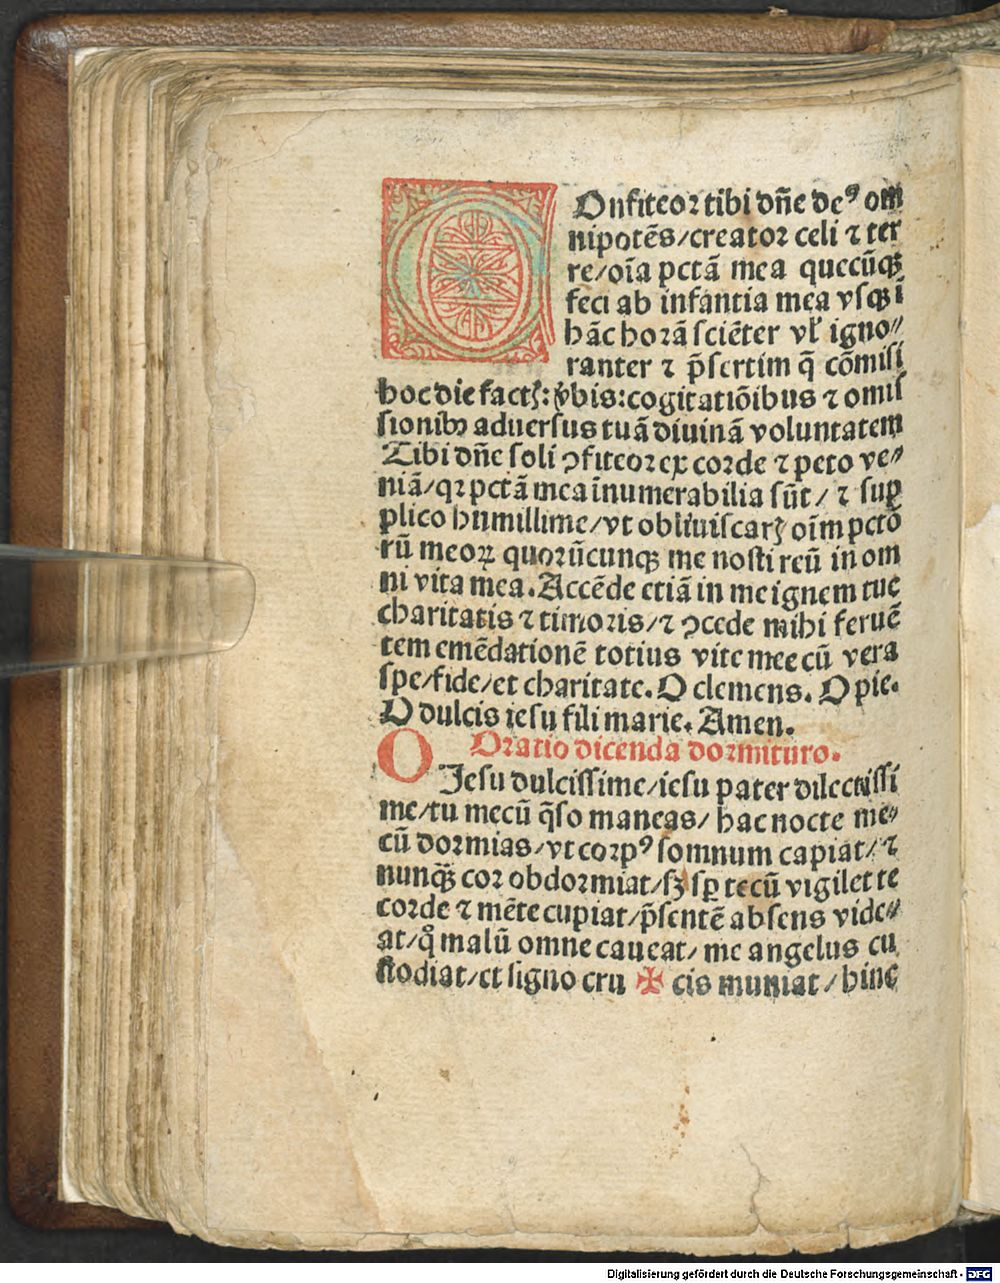 COnfiteor tibi dñe deꝰ om
nipotẽs/creator celi ⁊ ter
re/oĩa pctã mea quecũqꝫ
feci ab infantia mea vsqꝫ ĩ
hãc horã sciẽter vl̕ igno⸗
ranter ⁊ p̃sertim q̃ cõmisi
hoc die factꝭ: v̕bis: cogitatiõibus ⁊ omis
sionibꝰ aduersus tuã diuinã voluntatem
Tibi dñe soli ꝯfiteor ex corde ⁊ peto ve⸗
niã/qꝛ pctã mea ĩnumerabilia sũt/ ⁊ sup
plico humillime/vt obliuiscarꝭ oĩm pctõ
rũ meoꝝ quorũcunqꝫ me nosti reũ in om
ni vita mea. Accẽde etiã in me ignem tue
charitatis ⁊ timoris/⁊ ꝯcede mihi feruẽ
tem emẽdationẽ totius vite mee cũ vera
spe/fide/et charitate. O clemens. O pie.
O dulcis iesu fili marie. Amen.
Oratio dicenda dormituro.
O Jesu dulcissime/iesu pater dilectissi
me/tu mecũ q̃so maneas/ hac nocte me⸗
cũ dormias/vt corpꝰ somnum capiat/ ⁊
nunqꝫ̃ cor obdormiat/sꝫ sꝑ tecũ vigilet te
corde ⁊ mẽte cupiat/p̃sentẽ absens vide⸗
at/qͦ malũ omne caueat/ me angelus cu
stodiat/et signo cru ✠ cis muniat/ hinc
Digitalisierung gefördert durch die Deutsche Forschungsgemeinschaft - DFG